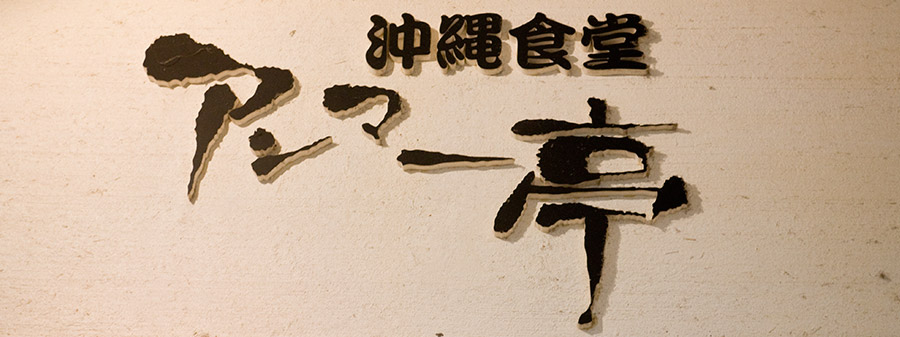 沖縄食堂
アンマー亭